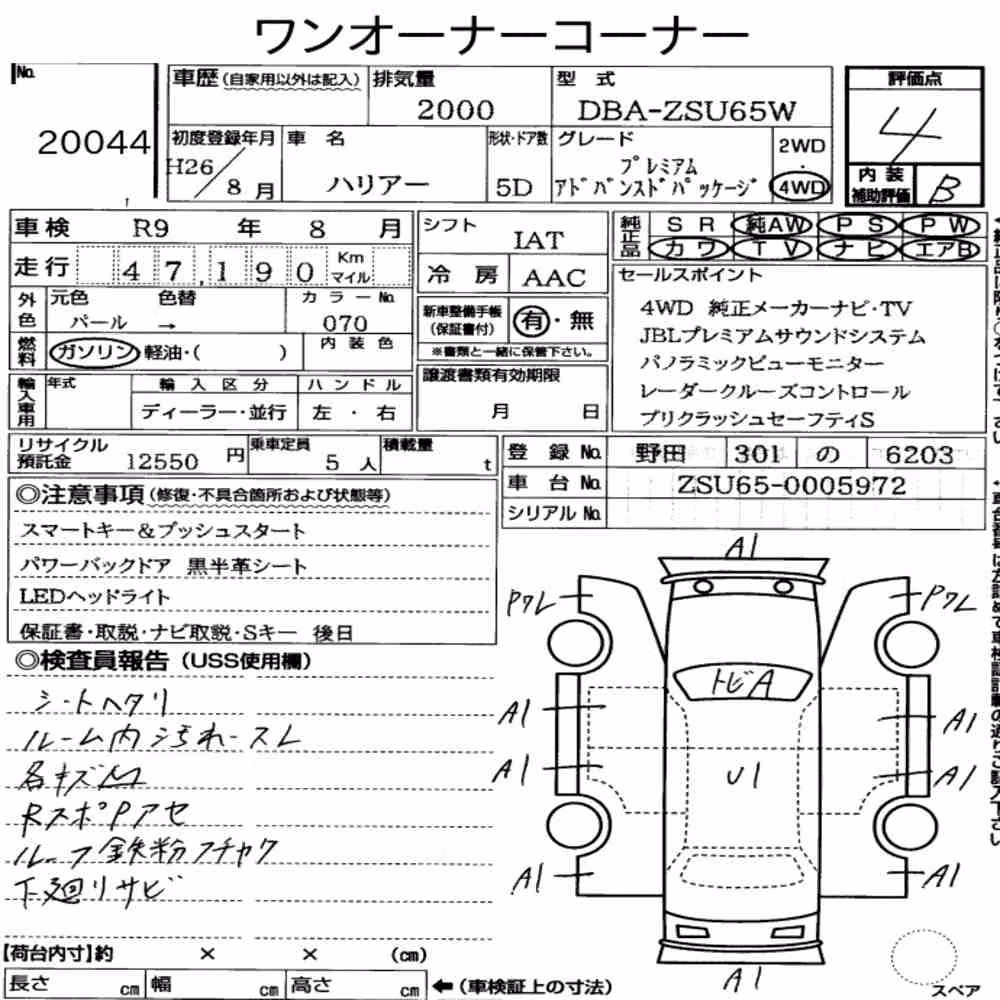 ワンオーナーコーナー
No. 20044
車歴(自家用以外は記入) 排気量 2000 型式 DBA-ZSU65W
初度登録年月 H26/8月 車名 ハリアー 形状・ドア数 5D グレード プレミアム アドバンスドパッケージ 2WD・4WD
評価点 4
内装補助評価 B
車検 R9年 8月
走行 47,190 Km マイル
シフト IAT
冷房 AAC
純正品 SR 純AW PS PW
カワ TV ナビ エアB
外色 元色 パール 色替 → カラーNo. 070
燃料 ガソリン 軽油・( ) 内装色
新車整備手帳(保証書付) 有・無
※書類と一緒に保管下さい。
セールスポイント
4WD 純正メーカーナビ・TV
JBLプレミアムサウンドシステム
パノラミックビューモニター
レーダークルーズコントロール
プリクラッシュセーフティS
輸入車用 年式 輸入区分 ディーラー・並行 ハンドル 左・右
譲渡書類有効期限 月 日
リサイクル預託金 12550円 乗車定員 5人 積載量 t
登録No. 野田 301 の 6203
車台No. ZSU65-0005972
シリアルNo.
◎注意事項(修復・不具合箇所および状態等)
スマートキー&プッシュスタート
パワーバックドア 黒半革シート
LEDヘッドライト
保証書・取説・ナビ取説・Sキー 後日
◎検査員報告(USS使用欄)
シートヘタリ
ルーム内汚れ・スレ
各キズ凹
RスポPアセ
ルーフ鉄粉フチャク
下廻リサビ
A1
Pワレ Pワレ
トビA
A1 A1
A1 U1 A1
A1 A1
A1
スペア
【荷台内寸】約 × × (cm)
長さ cm 幅 cm 高さ cm ←(車検証上の寸法)